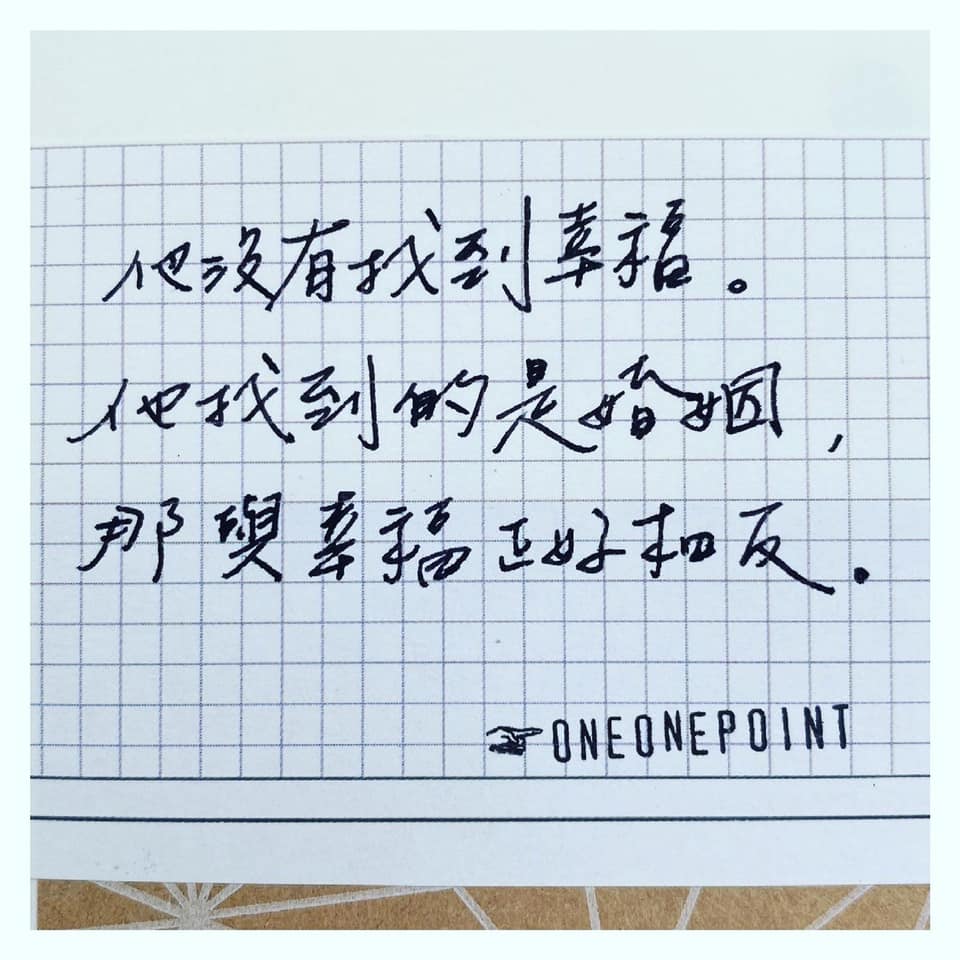 他沒有找到幸福。
他找到的是婚姻，
那與幸福正好相反。
ONEONEPOINT